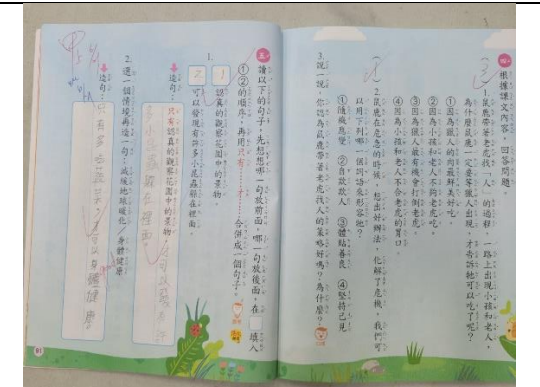 四 根據課文內容,回答問題。
(3) 1.鼠鹿帶著老虎找「人」的過程,一路上出現小孩和老人,
為什麼鼠鹿一定要等獵人出現,才告訴牠可以吃了呢?
①因為獵人的肉最鮮美好吃。
②因為小孩和老人不夠老虎吃。
③因為獵人做有機會打倒老虎。
④因為小孩和老人不合老虎的胃口。
(1) 2.鼠鹿在危急的時候,想出好辦法,化解了危機,我們可
以用下列哪一個詞語來形容牠?
①隨機應變 ②自欺欺人 ③體貼善良 ④堅持己見
3.說一說,你認為鼠鹿帶著老虎找人的策略好嗎?為什麼?
五 讀以下的句子,先想想哪一句放前面,哪一句放後面,在 填入
①②的順序,再用只有……,合併成一個句子。
1.
1 認真的觀察花園中的景物。
2 可以發現有許多小昆蟲躲在裡面。
造句:只有認真的觀察花園中的景物,才可以發現有許
多小昆蟲躲在裡面。
2.選一個情境再造一句:減緩地球暖化/身體健康
造句:只有多去運動,才可以身體健康
81